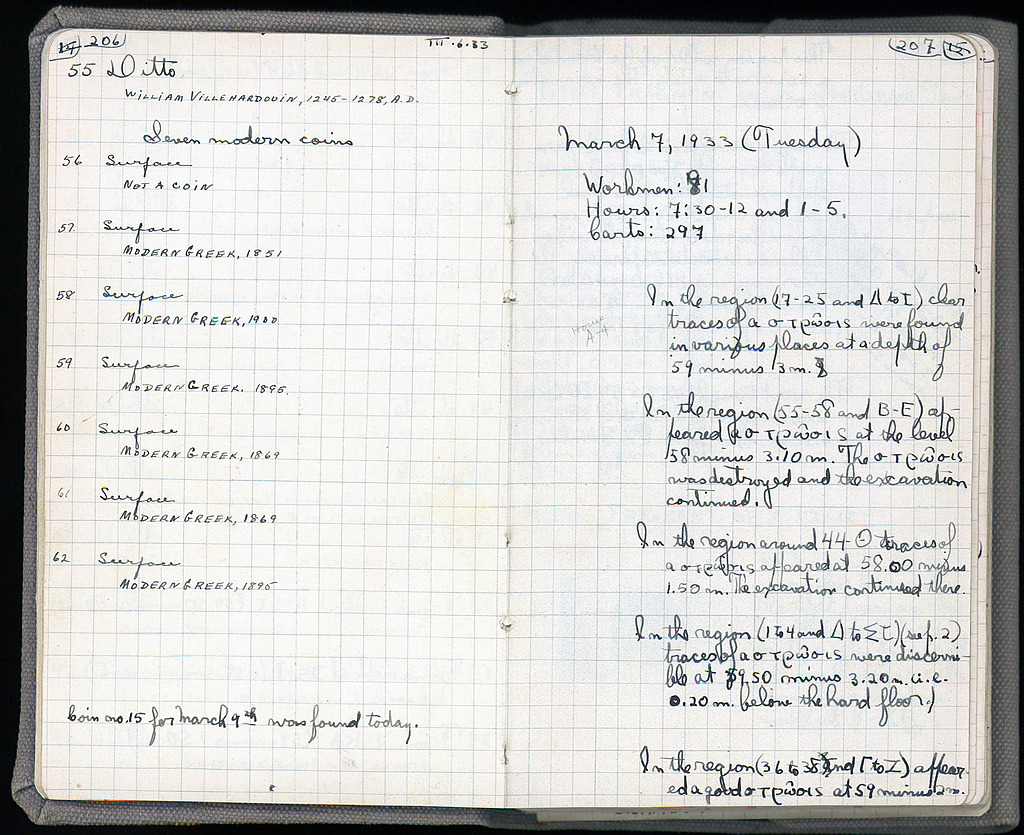 206
III.6.33
55 Ditto
WILLIAM VILLEHARDOUIN, 1245-1278, A.D.
Seven modern coins
56 Surface
NOT A COIN
57 Surface
MODERN GREEK, 1851
58 Surface
MODERN GREEK, 1900
59 Surface
MODERN GREEK. 1895.
60 Surface
MODERN GREEK, 1869
61 Surface
MODERN GREEK, 1869
62 Surface
MODERN GREEK, 1895
Coin no. 15 for March 9th was found today.
207 15
March 7, 1933 (Tuesday)
Workmen: 81
Hours: 7:30-12 and 1-5.
Carts: 297
In the region (17-25 and Δ to Ι) clear
traces of a στρῶσις were found
in various places at a depth of
59 minus 3 m.
A-4
In the region (55-58 and B-E) ap-
peared a στρῶσις at the level
58 minus 3.10 m. The στρῶσις
was destroyed and the excavation
continued.
In the region around 44-Θ traces of
a στρῶσις appeared at 58.00 minus
1.50 m. The excavation continued there.
In the region (1 to 4 and Δ to ΣΤ) (see p. 2)
traces of a στρῶσις were discerni-
ble at 59.50 minus 3.20 m. (i.e.
0.20 m. below the hard floor.)
In the region (36 to 38 and Γ to Ζ) appear-
ed a good στρῶσις at 59 minus 2 m.